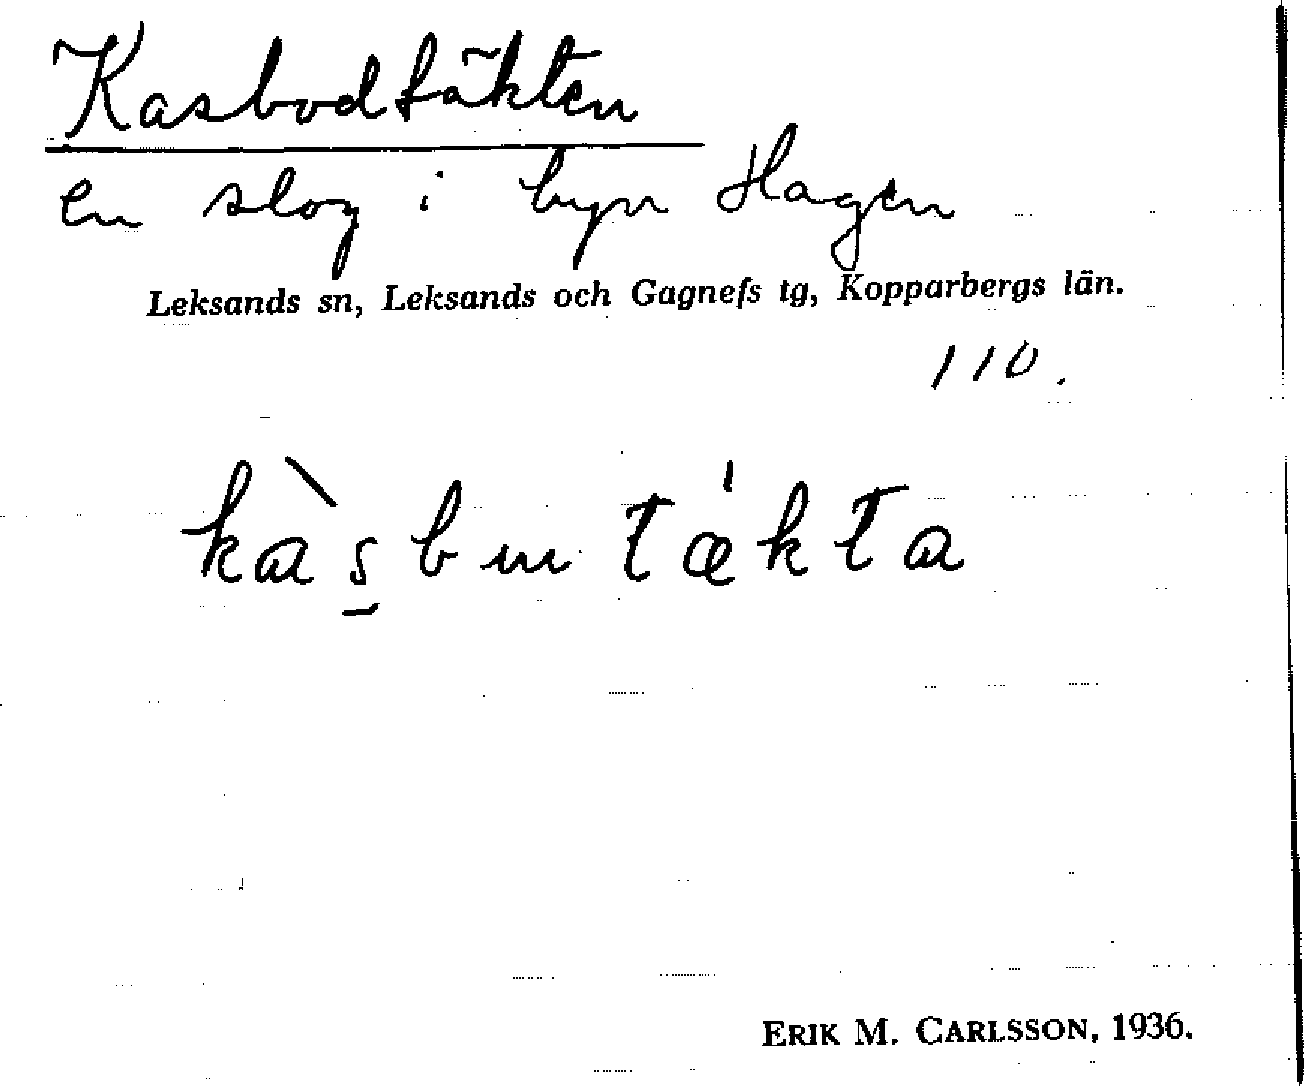 Kasbodtäkten
en slog i byn Hagen
Leksands sn, Leksands och Gagnefs tg, Kopparbergs län.
110.
kàs̱bmtǽkta
ERIK M. CARLSSON, 1936.